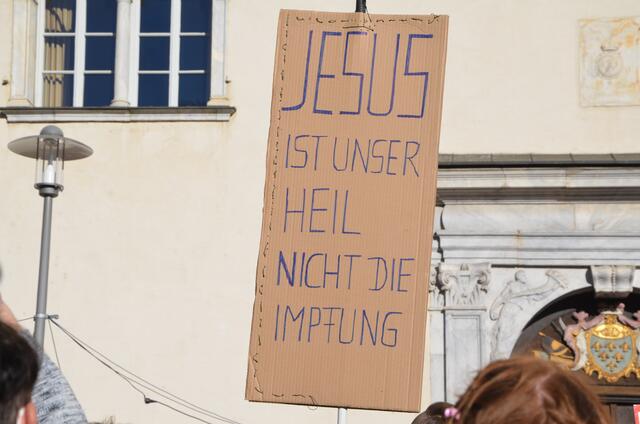 JESUS
IST UNSER
HEIL
NICHT DIE
IMPFUNG